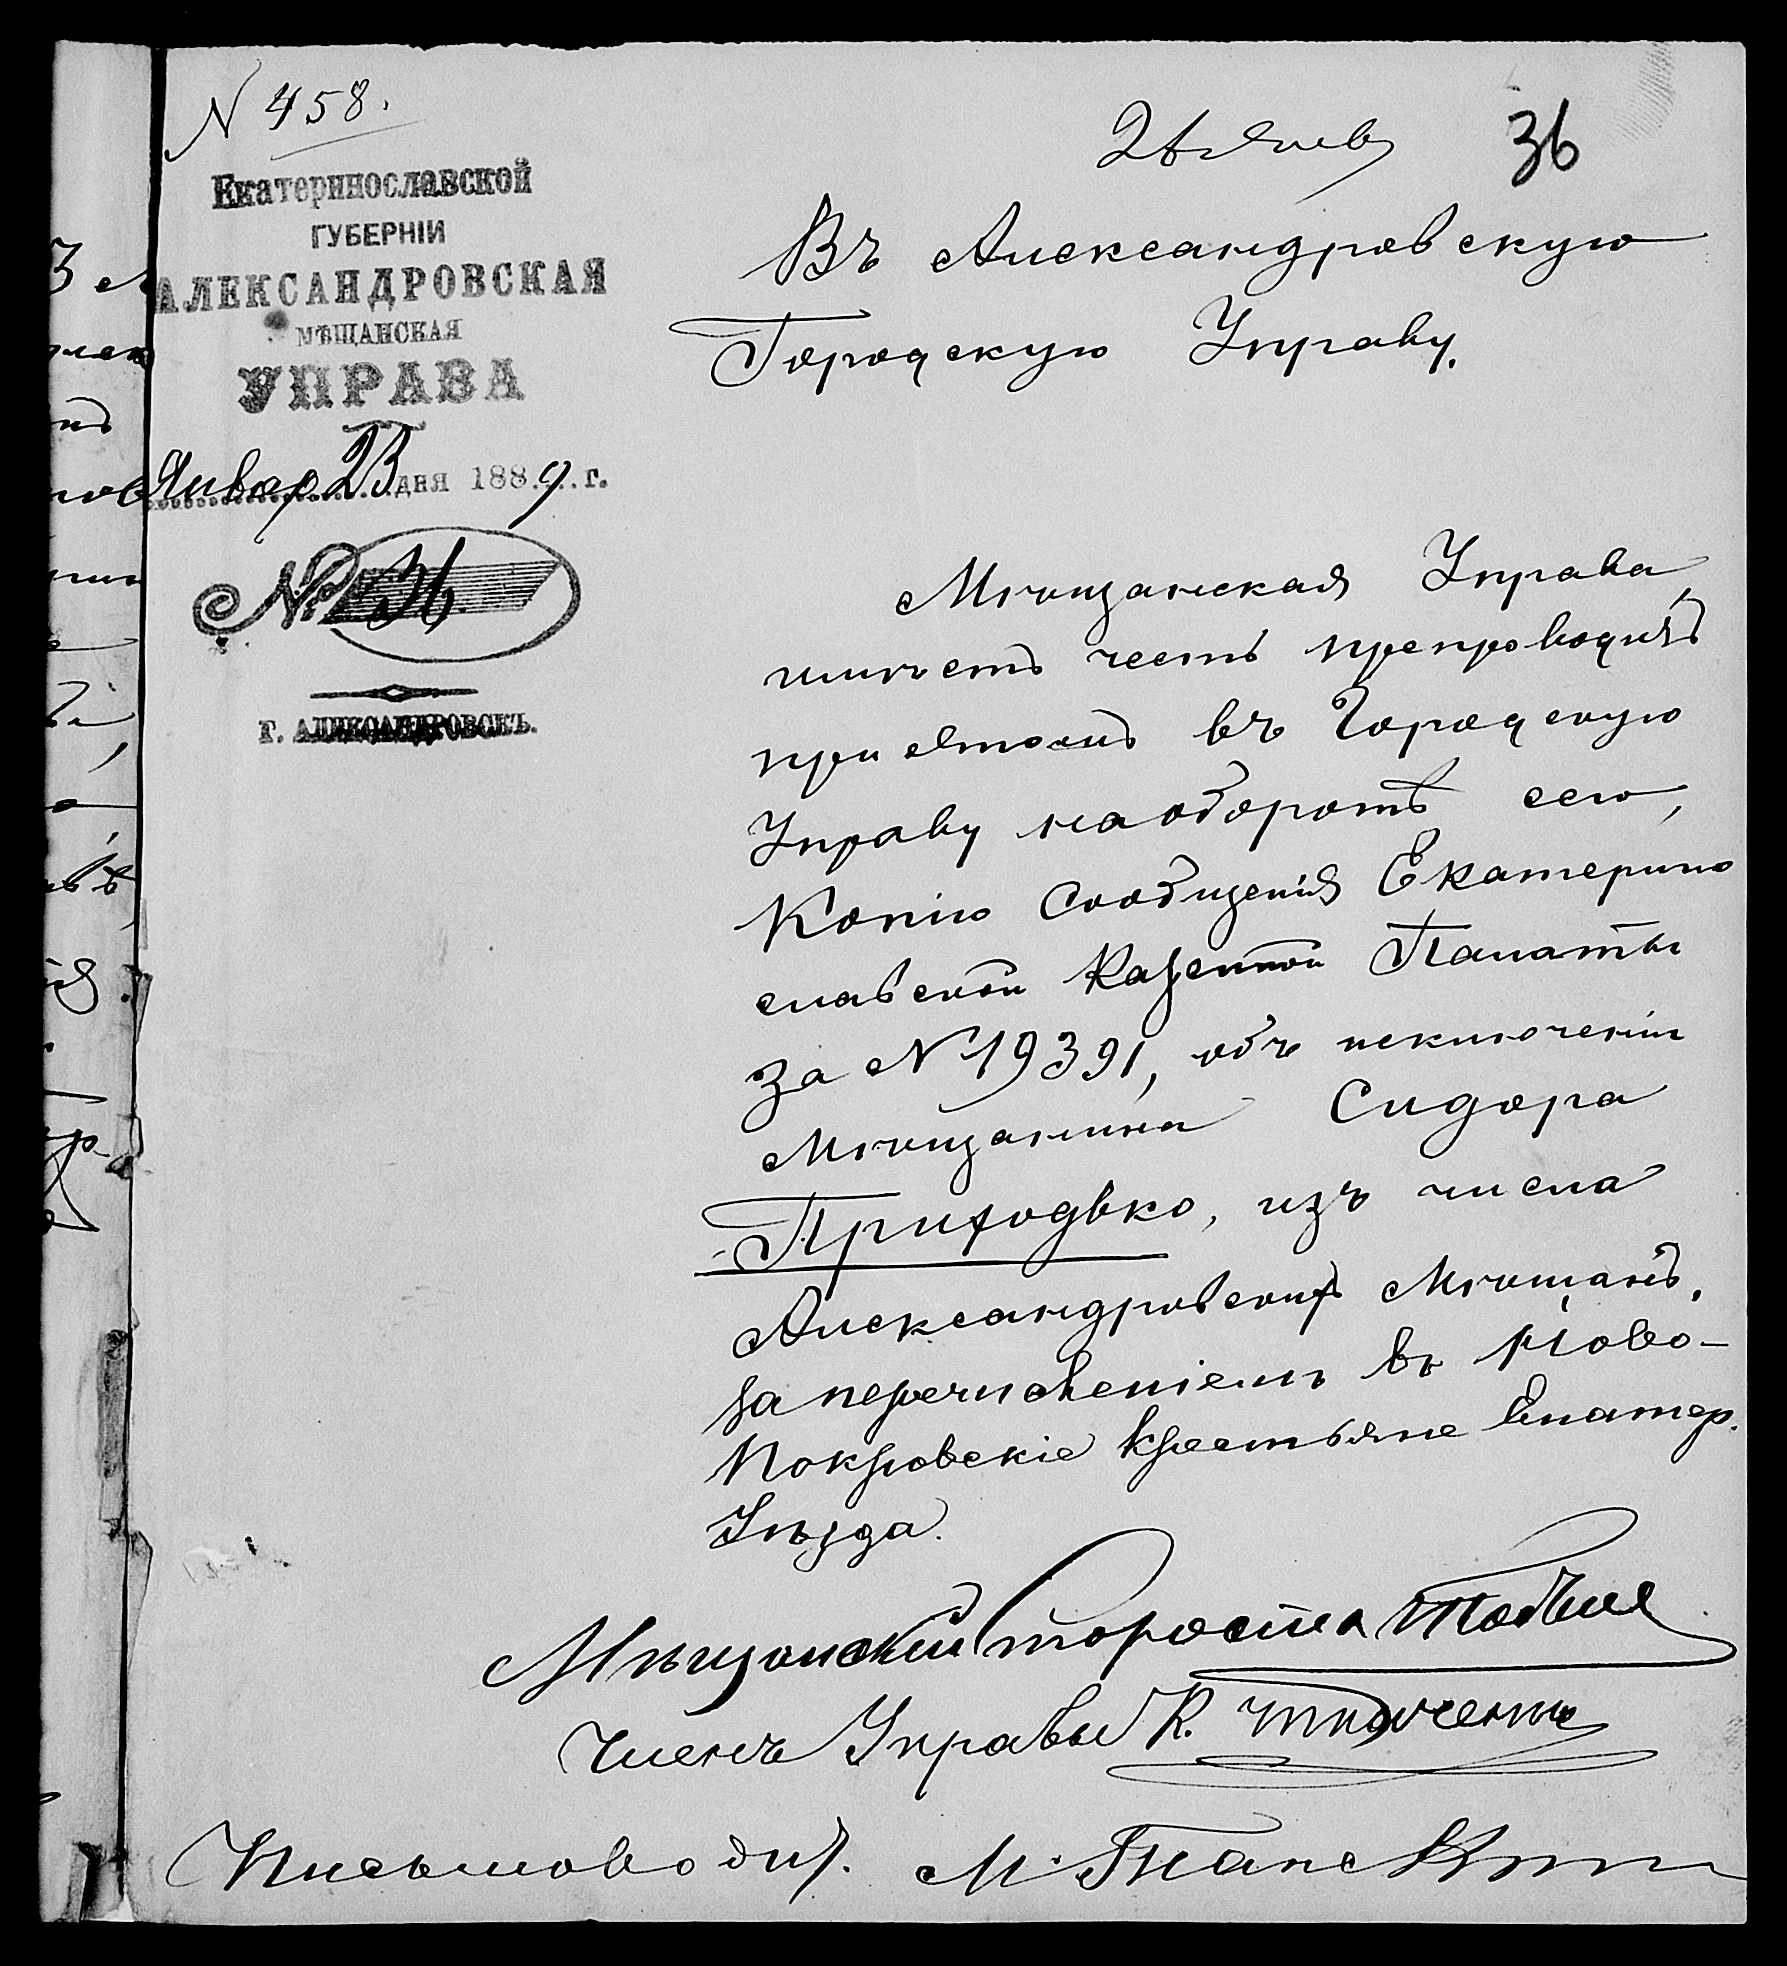 N 458.
26 Янв
36
Екатеринославской
ГУБЕРНІИ
АЛЕКСАНДРОВСКАЯ
МѢЩАНСКАЯ
УПРАВА
Январ 23 дня 1889 г.
№ 36
г. АЛЕКСАНДРОВСКЪ.
Въ Александровскую
Городскую Управу.
Мѣщанская Управа,
имѣетъ честь препроводить
при этомъ въ Городскую
Управу на оборотѣ сего,
Копію Сообщенія Екатерино
славской Казенной Палаты
за N 19391, объ исключеніи
Мѣщанина Сидора
Приходько, изъ числа
Александровскихъ Мѣщанъ,
за перечисленіемъ въ Ново-
Покровскіе Крестьяне Екатер.
Уѣзда.
Мѣщанскій Староста
Членъ Управы К.
Письмоводит. М.